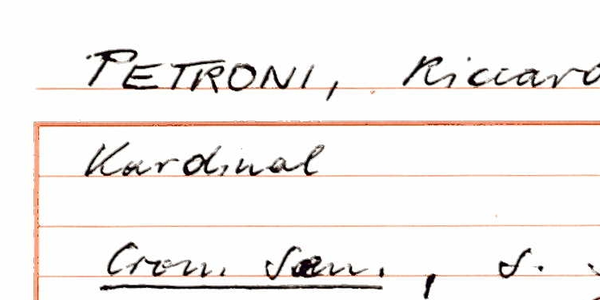 PETRONI, Riccard
Kardinal
Cron. Sen., S.